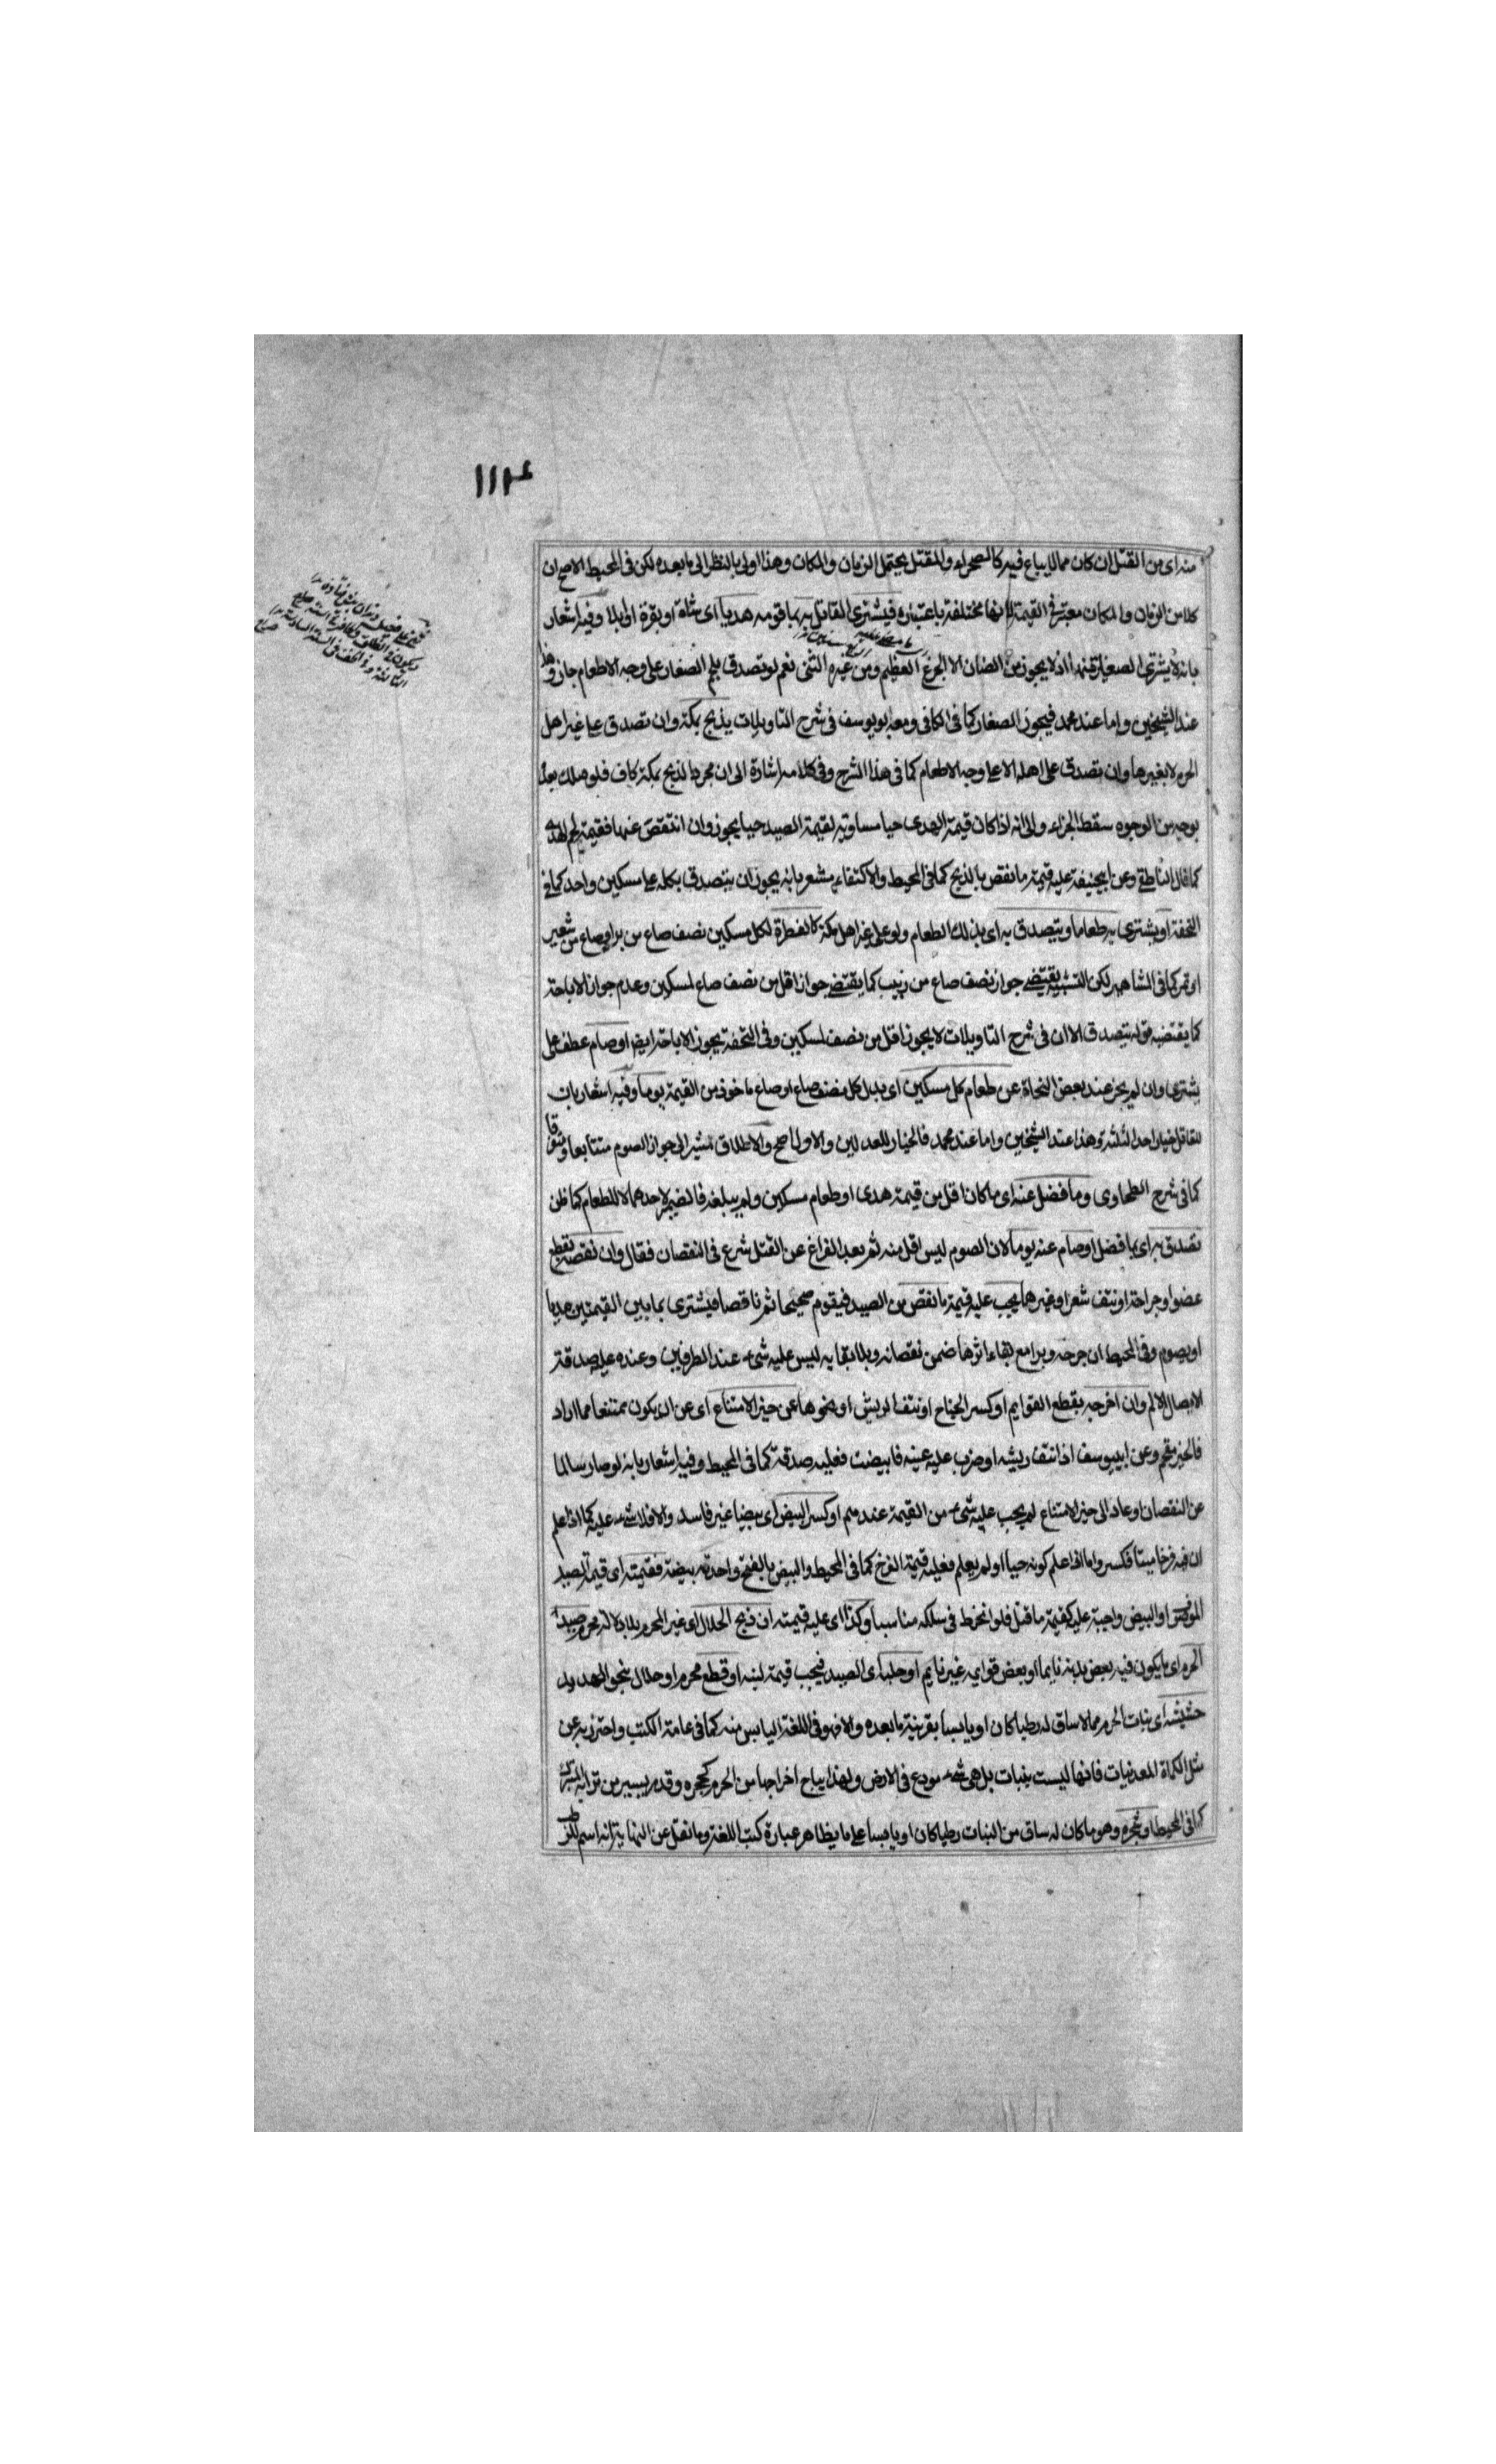 ١١٢٤
منه اى من القتل ان كان مما لا يباع فيه كالصحراء والمقتل يحتمل الزمان والمكان وهذا اولى بالنظر الى ما بعده لكن فى المحيط الاصح ان
كلا من الزمان والمكان معتبر فى القيمة لانها مختلفة باعتباره فيشترى القاتل به بما قومه هديا اى شاة او بقرة او ابلا وفيه اشعار
بانه لا يشترى الصغار قندا اذ لا يجوز من الضان الا الجزع العظيم ومن غيره الثنى نعم لو تصدق بلحم الصغار على وجه الاطعام جاز وهذا
عند الشيخين واما عند محمد فيجوز الصغار كما فى الكافى ومعه ابو يوسف فى شرح التاويلات يذبح بمكة وان تصدق على غير اهل
الحرم لا بغيرها وان تصدق على اهله الا على وجه الاطعام كما فى هذا الشرح وفى كلامه اشارة الى ان مجرد الذبح بمكة كاف فلو هلك بعده
بوجه من الوجوه سقط الجزاء والى انه اذا كان قيمة الهدى حيا مساوية لقيمة الصيد حيا يجوز وان انتقص عنها فقيمة لحم الهدى
كما قال الناطقى وعن ابيحنيفة عليه قيمة ما نقص بالذبح كما فى المحيط والاكتفاء مشعر بانه يجوز ان يتصدق بكله على مسكين واحد كما فى
التحفة او يشترى به طعاما ويتصدق به اى بذلك الطعام ولو على غير اهل مكة كالفطرة لكل مسكين نصف صاع من بر او صاع من شعير
او تمر كما فى الشاهد لكن التشبيه يقتضى جواز نصف صاع من زبيب كما يقتضى جواز اقل من نصف صاع لمسكين وعدم جواز الاباحة
كما يقتضيه قوله يتصدق الا ان فى شرح التاويلات لا يجوز اقل من نصف لمسكين وفى التحفة يجوز الاباحة ايضا او صام عطف على
يشترى وان لم يجز عند بعض النحاة عن طعام كل مسكين اى بدل كل نصف صاع او صاع ماخوذ من القيمة يوما وفيه اشعار بان
للقاتل خيار احد الثلثة وهذا عند الشيخين واما عند محمد فالخيار للعدلين والاول اصح والاطلاق مشير الى جواز الصوم متتابعا ومتفرقا
كما فى شرح الطحاوى وما فضل عنه اى ما كان اقل من قيمة هدى او طعام مسكين ولم يبلغه فالضمير لاحدهما لا للطعام كما ظن
تصدق به اى بما فضل او صام عنه يوما لان الصوم ليس اقل منه ثم بعد الفراغ عن القتل شرع فى النقصان فقال وان نقصه بقطع
عضو او جراحة او نتف شعر او غيرهما يجب عليه قيمة ما نقص من الصيد فيقوم صحيحا ثم ناقصا فيشترى بما بين القيمتين هديا
او يصوم وفى المحيط ان جرحه وبرا مع بقاء اثرها ضمن نقصانه وبلا بقايه ليس عليه شىء عند الطرفين وعنده عليه صدقة
لايصال الالم وان اخرجه بقطع القوايم او كسر الجناح او نتف الريش او نحوها عن حيز الامتناع اى عن ان يكون ممتنعا مما اراد
فالحيز مقحم وعن ابييوسف اذا نتف ريشه او ضرب عليه عينه فابيضت فعليه صدقة كما فى المحيط وفيه اشعار بانه لو صار سالما
عن النقصان وعاد الى حيز الامتناع لم يجب عليه شىء من القيمة عندهم او كسر البيض اى بيضا غير فاسد والا فلا شىء عليه كما اذا علم
ان فيه فرخا ميتا فكسر واما اذا علم كونه حيا او لم يعلم فعليه قيمة الفرخ كما فى المحيط والبيض بالفتح واحدته بيضة فقيمته اى قيمة الصيد
او البيض واجبة عليه كقيمة ما قتل فلو انخرط فى سلكه مناسبا وكذا اى عليه قيمته ان ذبح الحلال اى غير المحرم بلا دلالة محرم صيد
الحرم اى ما يكون فيه بعض بدنه نايما او بعض قوايمه غير نايم او حلبه اى الصيد فيجب قيمة لبنه او قطع محرم او حلال بنحو الهدم
حشيشه اى نبات الحرم مما لا ساق له رطبا كان او يابسا بقرينة ما بعده والا فهو فى اللغة اليابس منه كما فى عامة الكتب واحترز به عن
مثل الكماة المعدنيات فانها ليست بنبات بل هى شىء مودع فى الارض ولهذا يباح اخراجها من الحرم كحجره وقدر يسير من ترابه للتبرك
كما فى المحيط او شجره وهو ما كان له ساق من النبات رطبا كان او يابسا على ما يظاهر عبارة كتب اللغة وما نقل عن النهاية انه اسم للرطب